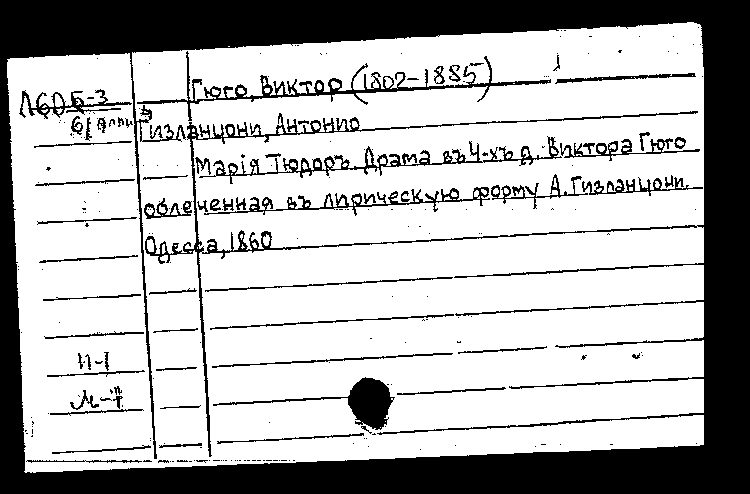 Л60 Б-3
Гюго, Виктор (1802-1885)
Гизланцони, Антонио
Марія Тюдоръ. Драма въ 4-хъ д. Виктора Гюго
облеченная въ лирическую форму А. Гизланцони.
Одесса, 1860